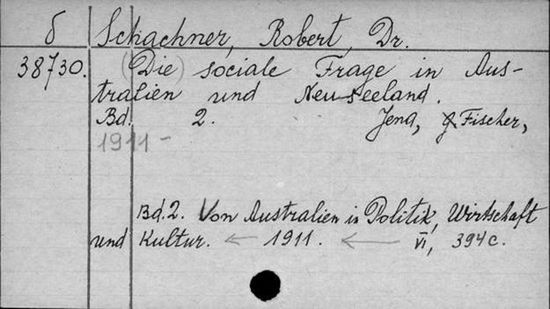 б Schachner, Robert, Dr.
38730. (Die) sociale Frage in Aus-
tralien und Neu-Seeland.
Bd. 2. Jena, G. Fischer,
1911 -
Bd. 2. Von Australien in Politik, Wirtschaft
und Kultur. ← 1911. ← VI, 394 c.